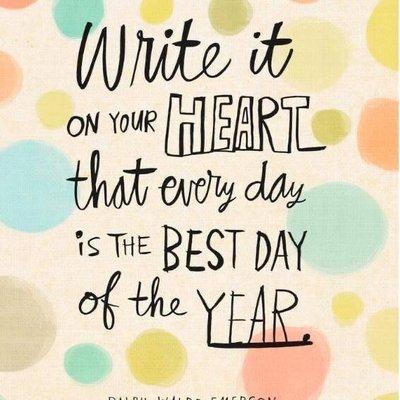 Write it
ON YOUR HEART
that every day
is THE BEST DAY
of the YEAR.
RALPH WALDO EMERSON